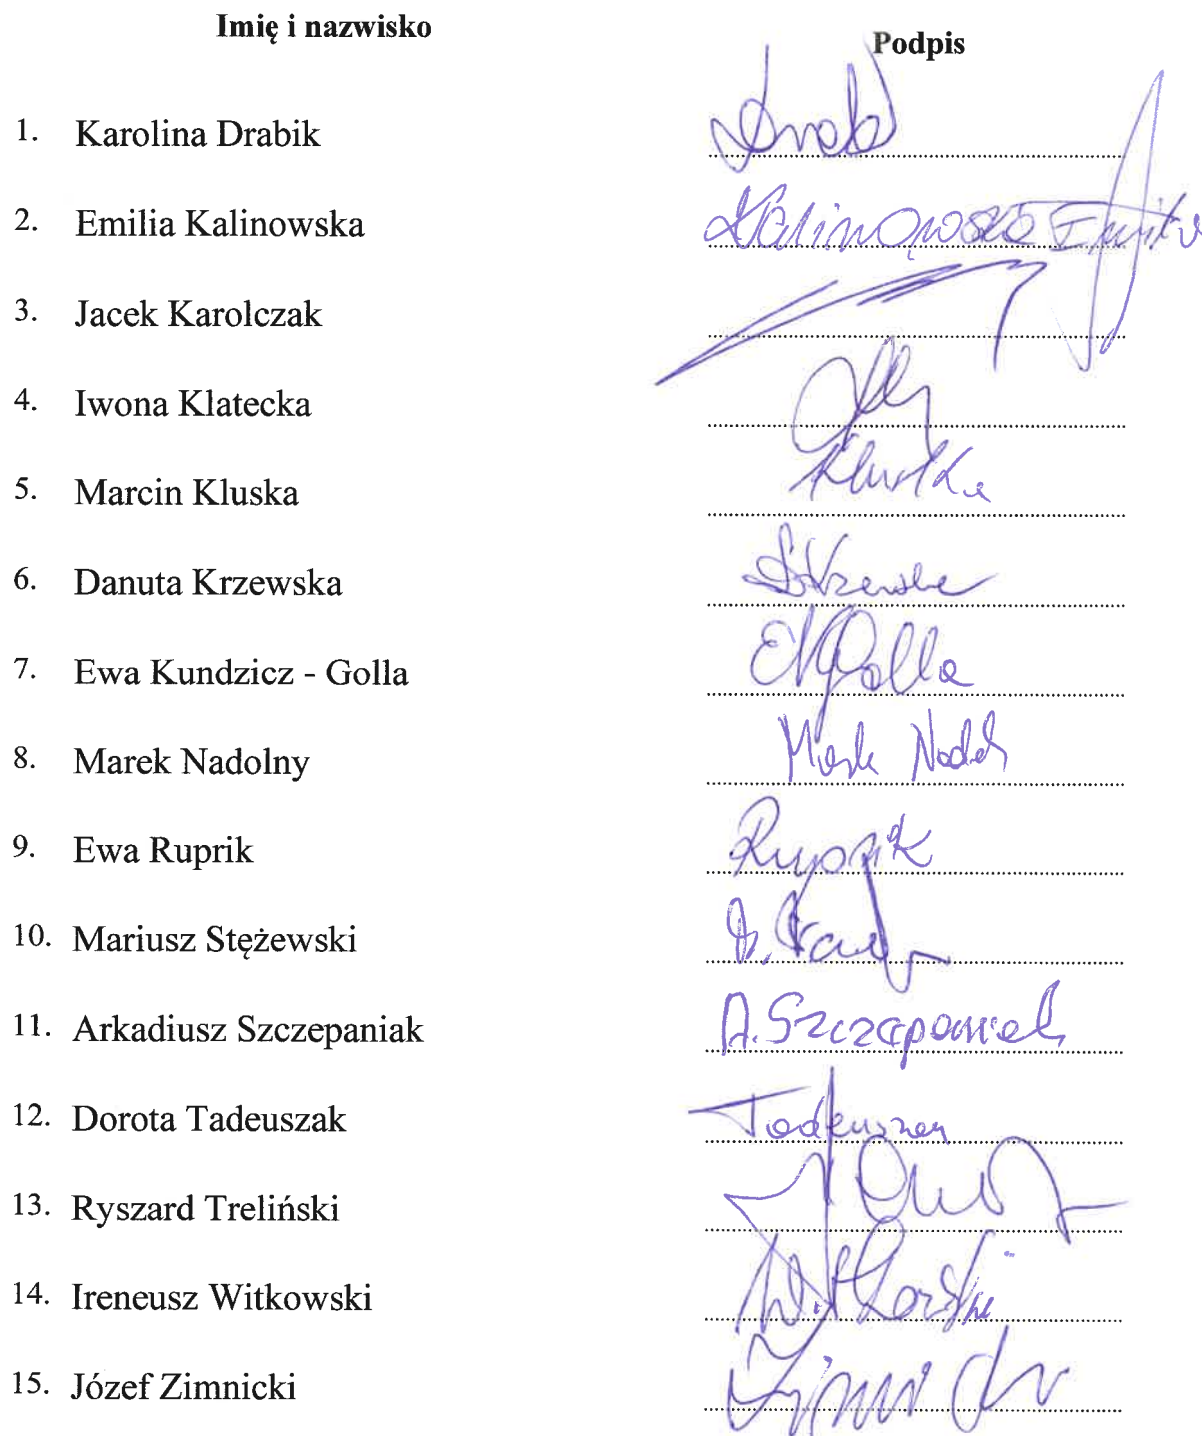 Imię i nazwisko Podpis
1. Karolina Drabik
2. Emilia Kalinowska Kalinowska Emilia
3. Jacek Karolczak
4. Iwona Klatecka
5. Marcin Kluska Kluska
6. Danuta Krzewska DKrzewska
7. Ewa Kundzicz - Golla EKGolla
8. Marek Nadolny Marek
9. Ewa Ruprik Ruprik
10. Mariusz Stężewski
11. Arkadiusz Szczepaniak A. Szczepaniak
12. Dorota Tadeuszak Tadeuszak
13. Ryszard Treliński
14. Ireneusz Witkowski Witkowski
15. Józef Zimnicki